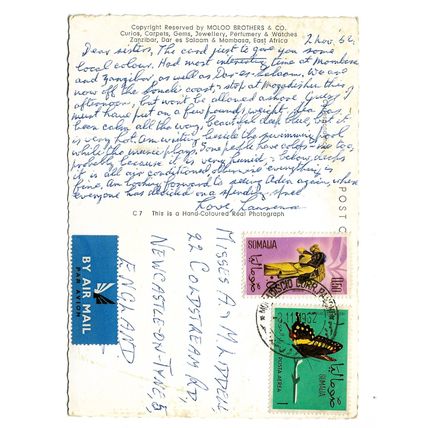 Copyright Reserved by MOLOO BROTHERS & CO.
Curios, Carpets, Gems, Jewellery, Perfumery & Watches
Zanzibar, Dar es Salaam & Mombasa, East Africa
2 Nov. 62.
Dear sisters, This card just to give you some
local colour. Had most interesting time at Mombasa
and Zanzibar, as well as Dar-es-Salaam. We are
now off the Somali coast, stop at Mogadishu this
afternoon, but won't be allowed ashore. Guess I
must have put on a few pounds weight. Sea has
been calm all the way, beautiful deep blue, but it
is very hot. Am writing beside the swimming pool
while the music plays. Some people have colds - me too,
probably because it is very humid, & below decks
it is all air conditioned, otherwise everything is
fine. Am looking forward to seeing Aden again, where
everyone has decided on a spending spree
Love, Laurence
POST C
C7 This is a Hand-Coloured Real Photograph
BY AIR MAIL
PAR AVION
MISSES A & M LIDDELL
22 COLDSTREAM RD,
NEWCASTLE-ON-TYNE, 5,
ENGLAND
SOMALIA
1,50
MOGADISCIO CORR.
11.1962
POSTA AEREA
SOMALIA
1